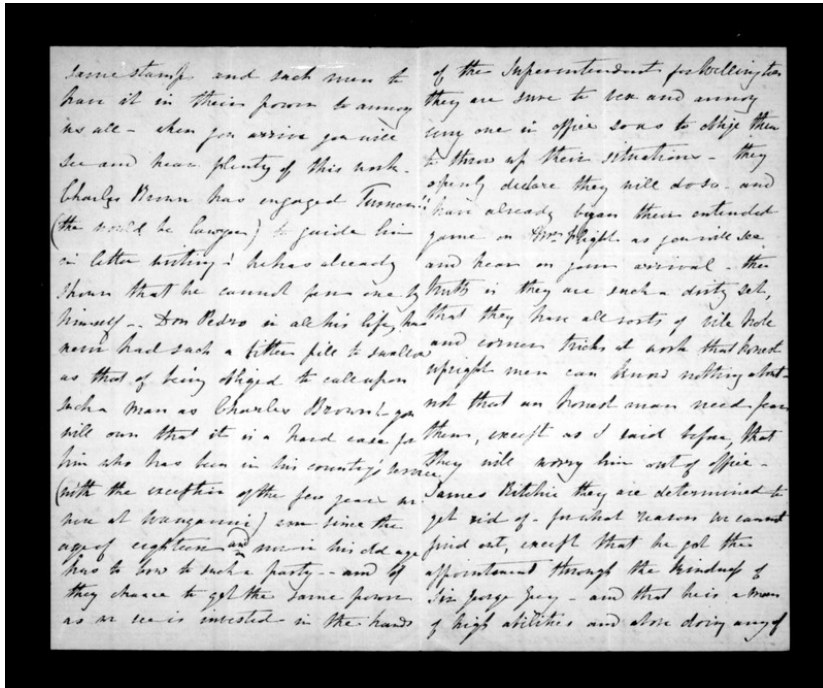 same stamp and such men to
have it in their power to annoy
us all - when you arrive you will
see and hear plenty of this work -
Charles Brown has engaged
(the would be lawyer) to guide him
in letter writing! he has already
shown that he cannot pen one by
himself -- Don Pedro in all his life, has
never had such a bitter pill to swallow
as that of being obliged to call upon
such a man as Charles Brown! you
will own that it is a hard case for
him who has been in his country's
(with the exception of the few years we
were at Wanganui) ever since the
age of eighteen and now in his old age
has to bow to such a party -- and if
they chance to get the same power
as we see is invested in the hands
of the Superintendent for Wellington
they are sure to vex and annoy
any one in office so as to oblige them
to throw up their situations - they
openly declare they will do so - and
have already began their entended
game on Wm Halse as you will see
and hear on your arrival - the
truth is they are such a dirty set,
that they have all sorts of vile hole
and corner tricks at work that honest
upright men can know nothing about -
not that an honest man need fear
them, except as I said before, that
they will worry him out of office -
James Ritchie they are determined to
get rid of - for what reason we cannot
find out, except that he got the
appointment through the kindness of
Sir George Grey - and that he is a man
of high abilities and above doing any of